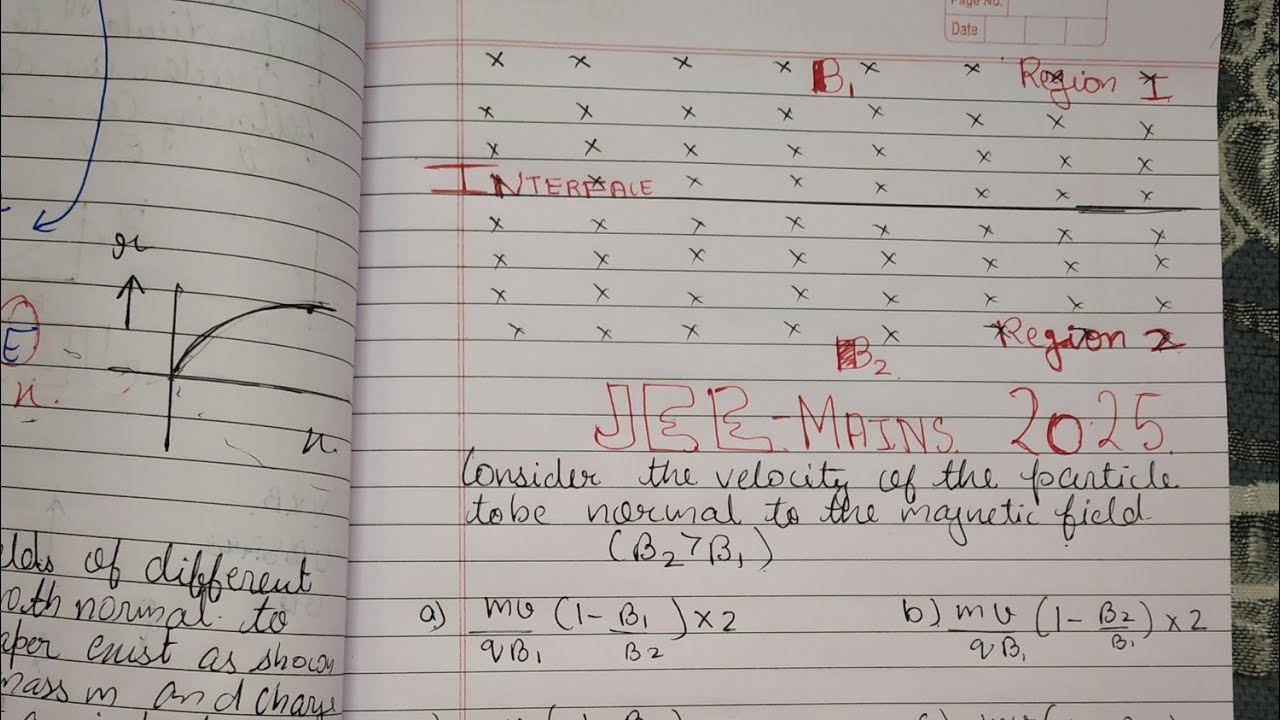 Page No.
Date
B₁
Region I
INTERFACE
Region 2
B₂
JEE-MAINS 2025
Consider the velocity of the particle
to be normal to the magnetic field
(B₂>B₁)
a) mv/qB₁ (1-B₁/B₂)×2
b) mv/qB₁ (1-B₂/B₁)×2
x
E
x.
x.
lds of different
oth normal to
aper exist as shown
mass m and charge